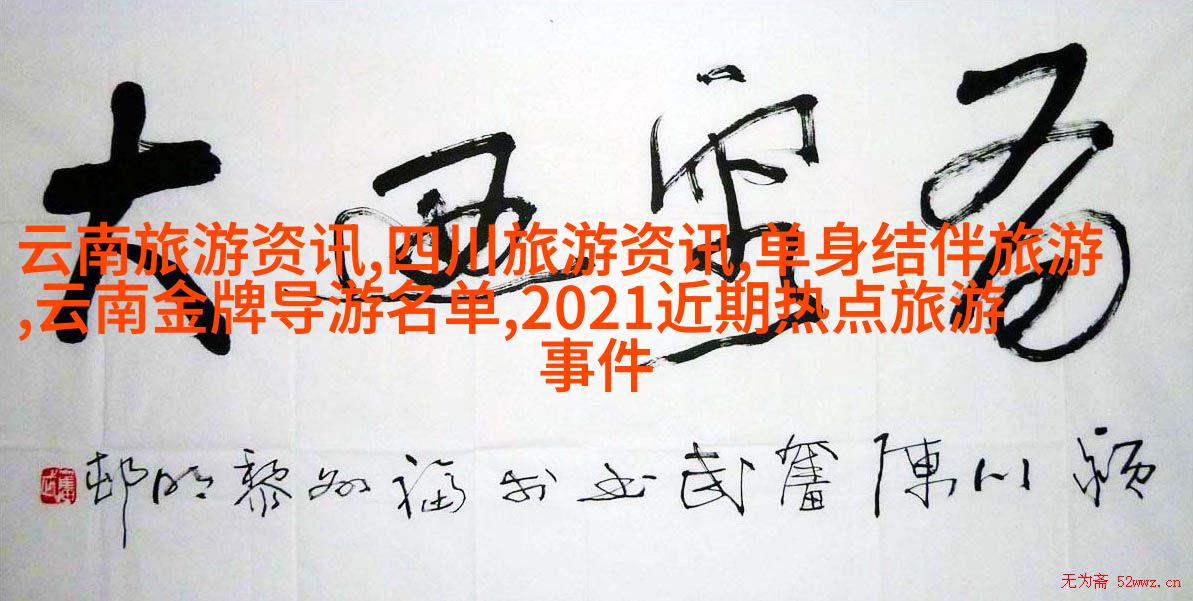 大
云南旅游资讯,四川旅游资讯,单身结伴旅游
,云南金牌导游名单,2021近期热点旅游
事件
颍川陳奮武书于福州黎明邨
无为斋 52wwz.cn